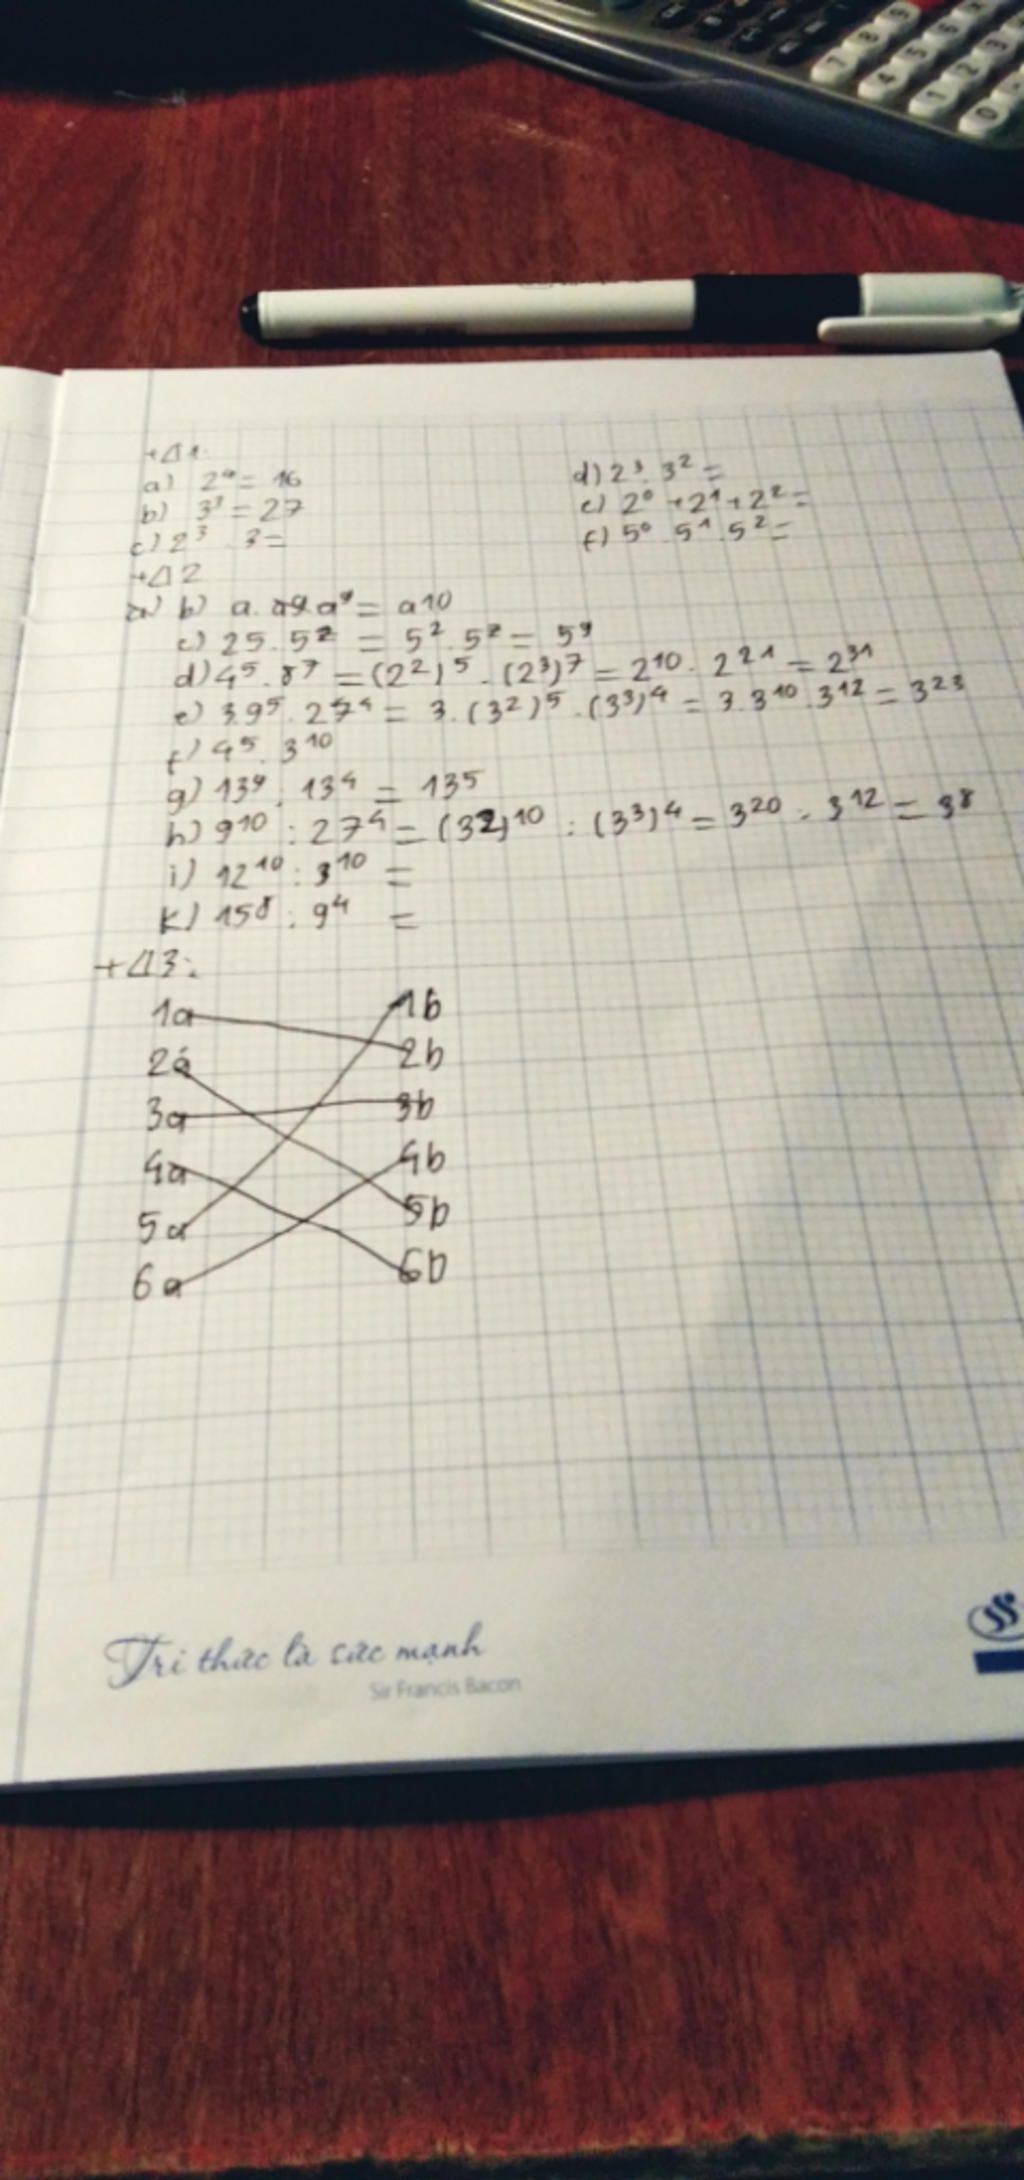 +Δ1:
a) 2⁴ = 16
b) 3³ = 27
c) 2³ . 3 =
d) 2³. 3² =
e) 2⁰ + 2¹ + 2² =
f) 5⁰ . 5¹ . 5² =
+Δ2
b) a. a⁹ = a10
c) 25. 5⁷ = 5². 5⁷ = 5⁹
d) 4⁵. 8⁷ = (2²)⁵ . (2³)⁷ = 2¹⁰. 2²¹ = 2³¹
e) 3.9⁵. 27⁴ = 3. (3²)⁵ .(3³)⁴ = 3.3¹⁰.3¹² = 3²³
f) 4⁵. 3¹⁰
g) 13⁹ : 13⁴ = 13⁵
h) 9¹⁰ : 27⁴ = (32)¹⁰ : (3³)⁴ = 3²⁰ : 3¹² = 3⁸
i) 12¹⁰ : 3¹⁰ =
k) 15⁸ : 9⁴ =
+Δ3:
1a 1b
2a 2b
3a 3b
4a 4b
5a 5b
6a 6b
Tri thức là sức mạnh
Sir Francis Bacon